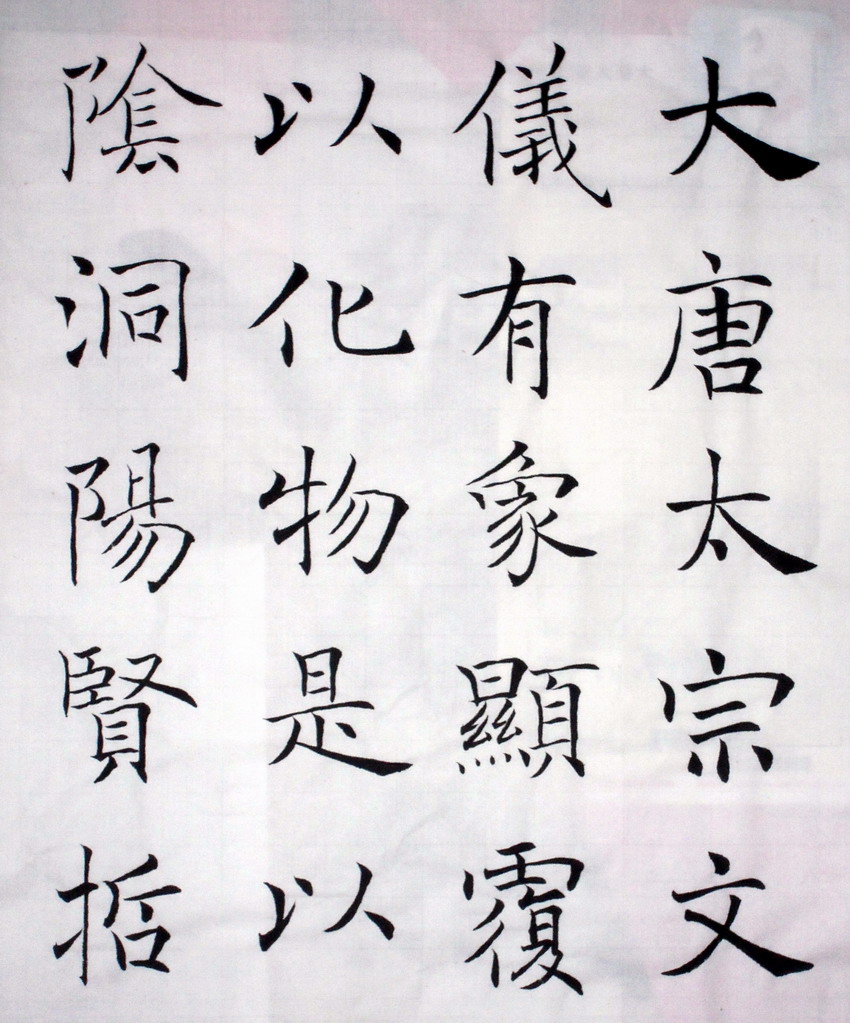 大唐太宗文
儀有象顯覆
以化物是以
陰洞陽賢哲